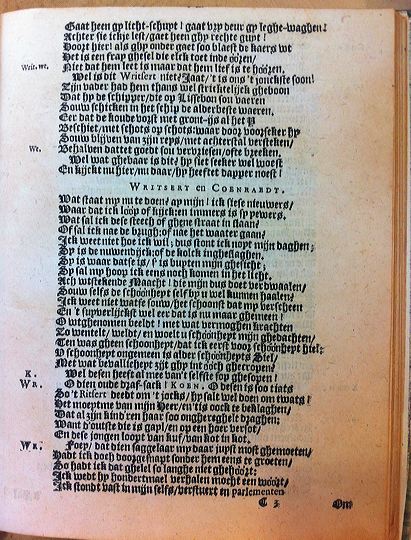 Gaat heen gy licht-schuyt! gaat vry deur gy leghe-waghen!
Achter sie ickje lest/ gaet heen ghy rechte guyt!
Hoort hier! als ghy onder gaet soo blaest de kaers wt
Het is een fray ghesel die elck toet inde ooren/
Writ. wt. Niet dat hem leet is maar dat hem lief is te hooren.
Wel is dit Writsert niet? Jaat/'t is ons 't jonckste soon!
Zijn vader had hem thans wel strickelijck gheboon
Dat hy de schipper/die op Lissebon sou varen
Souw schicken in het schip de alderbeste waeren.
Eer dat de koude vorst met gront-ijs al het P
Beschiet/met schots op schots: waar door voorseker hy
Souw blijven van zijn reys/ met achterstal versteken/
Wt. Behalven dattet goedt sou vervriesen/ofte breeken.
Wel wat ghebaar is dit? hy siet seeker wel woest
En kijckt nu hier/nu daar/hy heeftet dapper noest!
WRITSERT en COENRAEDT.
Wat staat my nu te doen? ay mijn! ick siese nieuwers/
Waar dat ick loop of kijck: en immers is sy pewers.
Wat sal ick dese steech of ghene straat in slaan?
Of sal ick nae de brugh: of nae het waater gaan?
Ick weet niet hoe ick wil; dus stont ick noyt mijn daghen;
Sy is de nuwendijck: of de kolck ingheslaghen.
Sy is waar datse is/ s' is buyten mijn ghesicht;
Sy sal my hoop ick eens noch komen in het licht.
Ach wtstekende Maacht! die mijn dus doet verdwaalen/
Souw selfs de schoonheyt self by u wel kunnen haalen?
Ick weet niet watse souw/het schoonst dat my verscheent
En 't suyverlijckst wel eer dat is nu maar ghemeen!
O wtghenomen beeldt! met wat vermoghen krachten
Zo wentelt/ weldt/ en woelt u schoonheyt mijn ghedachten/
Ten was gheen schoonheyt/dat ick eerst voor schoonheyt hiel;
U schoonheyt ongemeen is alder schoonheyts Siel/
Met wat bevallicheyt zijt ghy int oogh ghecropen?
K. Wel desen heeft al mee van 't selfste sop ghesopen!
WR. O dien oude dzaf-sack! KOEN. O desen is soo tiats
So't Ritsert deedt om't jocks/ hy salt wel doen om twats!
Het moeytme van mijn Heer/en 'tis oock te beklaghen/
Dat al zijn kind'ren haar soo ongheregheldt draghen;
Want d'outste die is gapl/en op een hoer versot/
En dese jongen loopt van kuf/van kot in kot.
WR. Foey/ dat dien saggelaar my daar juyst most ghemoeten/
Hadt ick doch doorgesnapt sonder hem eens te groeten/
So hadt ick dat ghelel so langhe niet ghehoort:
Ick wedt hy hondertmael verhalen mocht een woort/
Ick stondt vast in mijn selfs/verstuert en parlementen
C 3 Om